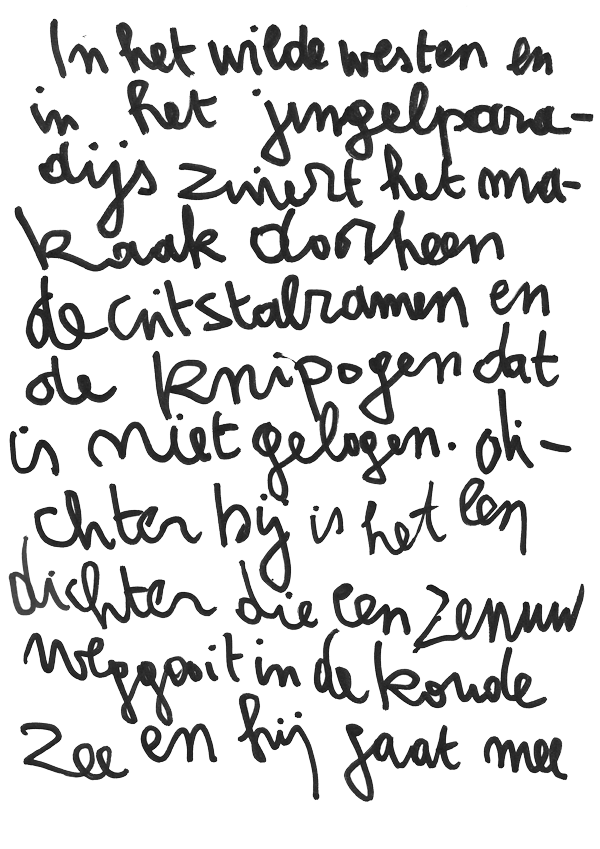 In het wilde westen en
in het jungelpara-
dijs zwiert het ma-
kaak doorheen
de critstalramen en
de knipogen dat
is niet gelogen. di-
chter bij is het een
dichter die een zenuw
weggooit in de koude
zee en hij gaat mee